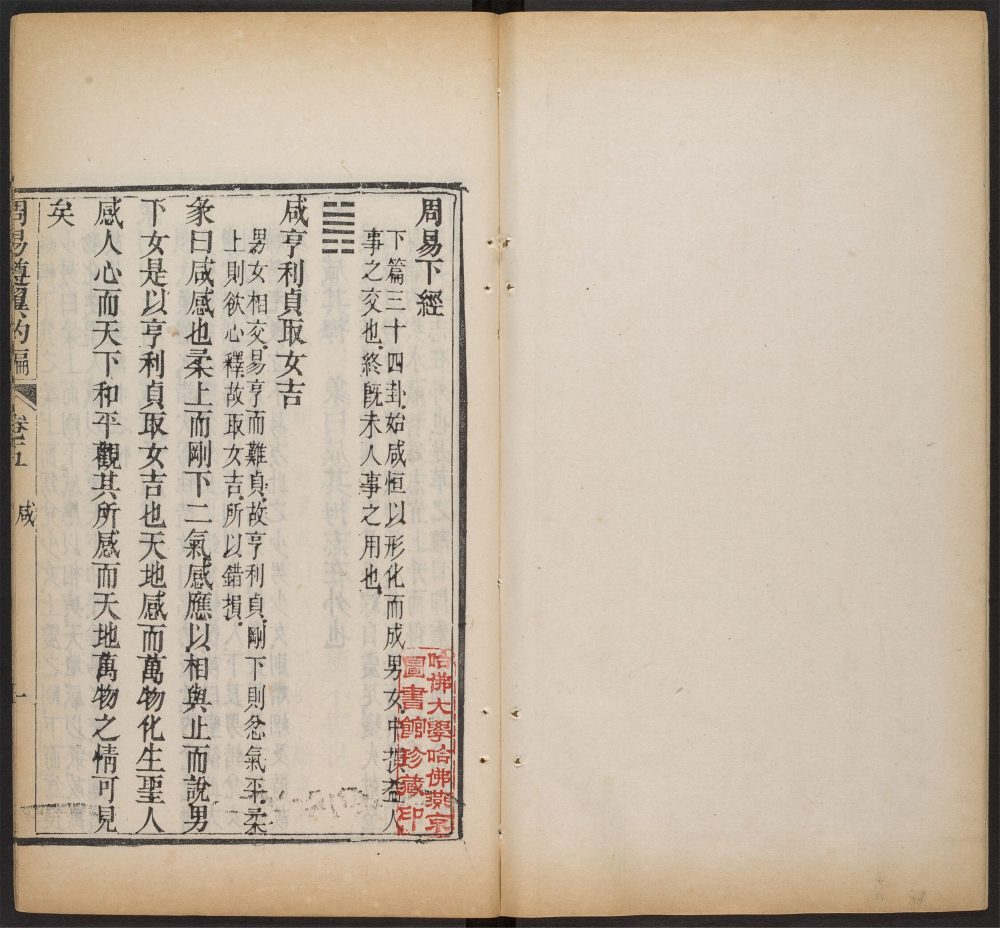 周易下經
下篇三十四卦始咸恒以形化而成男女中損益人
事之交也終既未人事之用也
䷞
咸亨利貞取女吉
男女相交易亨而難貞故亨利貞剛下則忿氣平柔
上則欲心釋故取女吉所以錯損
彖曰咸感也柔上而剛下二氣感應以相與止而說男
下女是以亨利貞取女吉也天地感而萬物化生聖人
感人心而天下和平觀其所感而天地萬物之情可見
矣
周易遵翼約編 卷五 咸 一
哈佛大學哈佛燕京
圖書館珍藏印